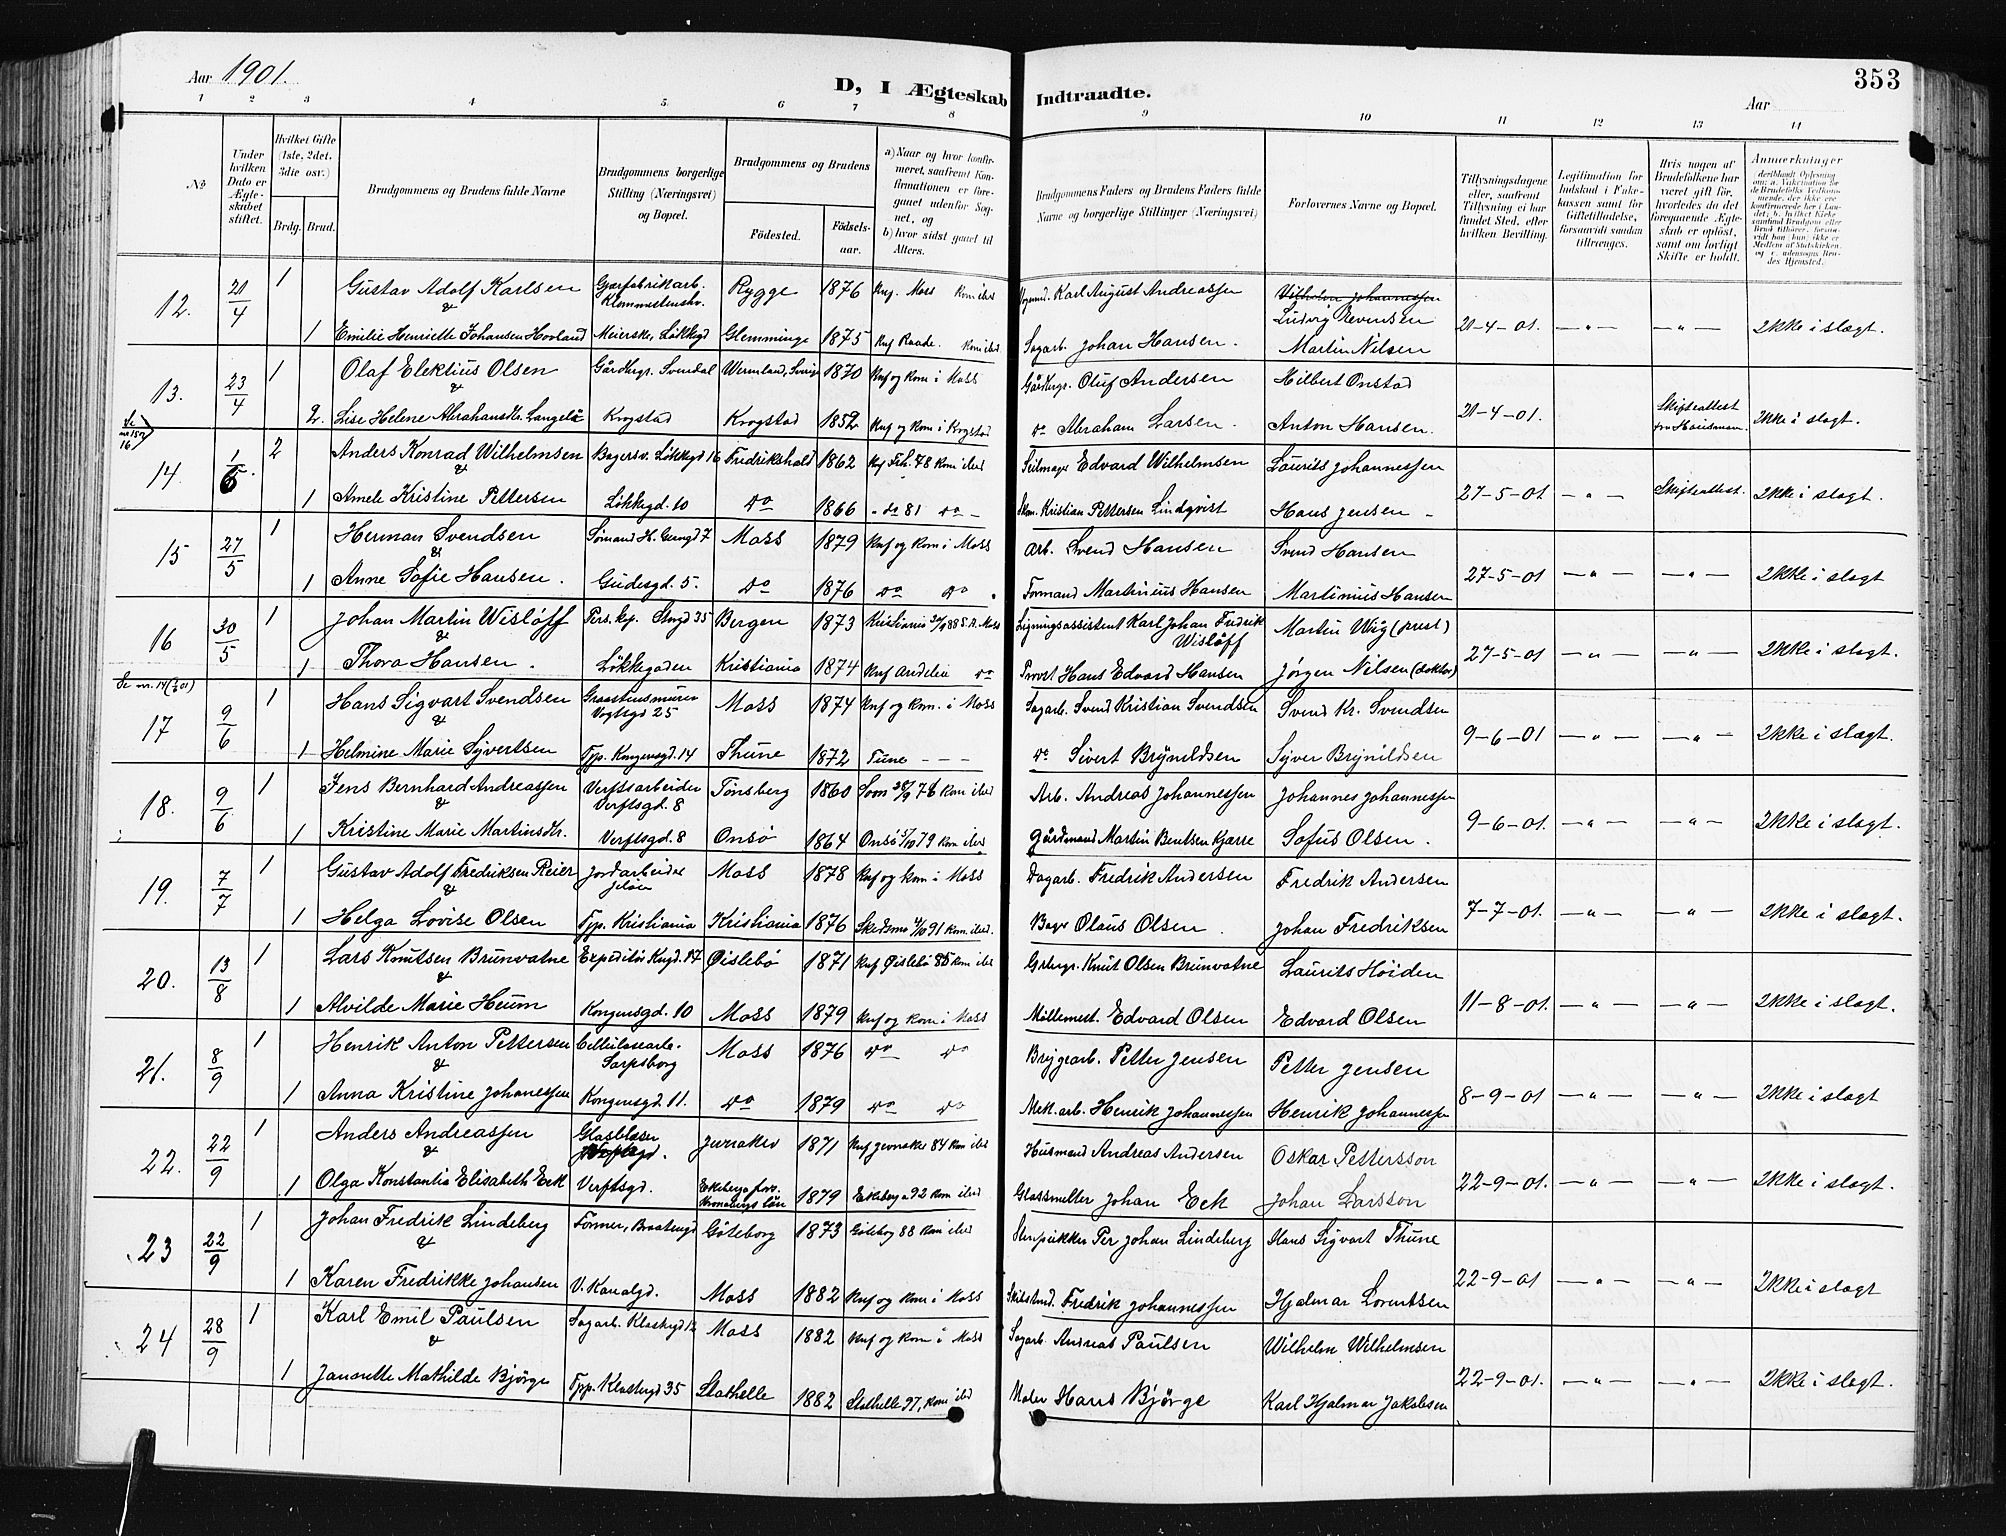 Aar 1901. D, I Ægteskab Indtraadte. Aar 353
1 2 3 4 5. 6 7 8 9 10 11 12 13 14
No
Under hvilken Dato er Ægteskabet stiftet.
Hvilket Gifte (1ste, 2det, 3die osv.)
Brdg. Brud.
Brudgommens og Brudens fulde Navne
Brudgommens borgerlige Stilling (Næringsvei) og Bopæl.
Brudgommens og Brudens
Fødested. Fødselsaar.
a) Naar og hvor konfirmeret, saafremt Konfirmationen er foregaaet udenfor Sognet, og
b) hvor sidst gaaet til Alters.
Brudgommens Faders og Brudens Faders fulde Navne og borgerlige Stillinger (Næringsvei)
Forlovernes Navne og Bopæl.
Tillysningsdagene eller, saafremt Tillysning ei har fundet Sted, efter hvilken Bevilling.
Legitimation for Indskud i Enkekassen samt for Giftetilladelse, forsaavidt saadan tiltrænges.
Hvis nogen af Brudefolkene har været gift før, hvorledes da det foregaaende Ægteskab er opløst, samt om lovligt Skifte er holdt.
Anmærkninger
12. 21/4 1 Gustav Adolf Karlsen Gærfabrikarb. Klommestenskv. Rygge 1876 Knf. Moss Kom ibid Karl August Andreassen Vilhelm Johannessen
& Ludvig Evensen
1 Emilie Henriette Johansen Hovland Meierske, Løkkegd Glemminge 1875 Knf Raade. Kom ibid. Sagarb. Johan Hansen. Martin Nilsen 21-4-01. — „ — — „ — Ikke i slægt.
13. 23/4 1 Olaf Elektius Olsen Gårdbrgr. Svendal Wermland, Sverige 1870 Knf og Kom i Moss Gårdbrgr. Oluf Andersen Hilbert Onstad
&
2. Lise Helene Abrahamsdtr. Langeli Krogstad Krogstad 1852 Knf og Kom i Krogstad do Abraham Larsen. Anton Hansen. 21-4-01. Skifteattest fra Ikke i slægt.
14. 1/6 2 Anders Konrad Wilhelmsen Bagersv. Løkkegd 16 Fredrikshald 1862 Kf Frh. 78 Kom ibid Seilmager Edvard Wilhelmsen Laurits Johannessen
&
1 Amele Kristine Pettersen Løkkegd. 10 do 1866 - do 81 do - Kristian Pettersen Lindqvist Hans Jensen - 27-5-01 — „ — Skifteattest. Ikke i slægt.
15 27/5 1 Herman Svendsen Sømand H. Gungd 7 Moss 1879 Knf og Kom i Moss Arb. Svend Hansen Svend Hansen
&
1 Anne Sofie Hansen. Gudesgd. 5. do 1876 do do Formand Martinius Hansen Martinius Hansen 27-5-01 — „ — — „ — Ikke i slægt
16 30/5 1 Johan Martin Wisløff Pers. kap. Stngd 35 Bergen 1873 Kristiania A. Moss Ligningsassistent Karl Johan Fredrik Wisløff Martin Wig (prest)
&
1 Thora Hansen. Løkkegaden Kristiania 1874 Knf Andelia do Provst Hans Edvard Hansen Jørgen Nilsen (doktor) 27-5-01 — „ — — „ — Ikke i slægt.
Se nr. 14 (1/6 01)
17 9/6 1 Hans Sigvart Svendsen Graastensmurer Vogtsgd 25 Moss 1874 Knf og Kom. i Moss Sagarb. Svend Kristian Svendsen Svend Kr. Svendsen
&
1 Helmine Marie Syvertsen Tjp. Kongensgd. 14 Thune 1872 Tune - - - do Sivert Brynildsen Syver Brynildsen 9-6-01 — „ — — „ — Ikke i slægt.
18. 9/6 1 Jens Bernhard Andreassen Verftsarbeider Verftsgd. 8 Tønsberg 1860 Soon 28/9 76 Kom ibid Arb. Andreas Johannessen Johannes Johannessen
&
1 Kristine Marie Martinsdtr. Verftsgd. 8 Onsø 1864 Onsø 5/10 79 Kom ibid Gårdmand Martin Bentsen Kjærre Sofus Olsen. 9-6-01. — „ — — „ — Ikke i slægt.
19. 7/7 1 Gustav Adolf Fredriksen Reier Jordarbeider Jeløen Moss 1878 Knf og Kom i Moss Dagarb. Fredrik Andersen Fredrik Andersen
&
1 Helga Lovise Olsen Tjp. Kristiania Kristiania 1876 Skedsmo 4/10 91 Kom ibid. Bager Olaus Olsen. Johan Fredriksen 7-7-01. — „ — — „ — Ikke i slægt.
20. 13/8 1 Lars Knutsen Brunvatne Expeditør Kngd. 17 Øislebø 1871 Knf Øislebø 85 Kom ibid Grbrgr. Knut Olsen Brunvatne Laurits Høiden
&
1 Alvilde Marie Heum Kongensgd. 10 Moss 1879 Knf og Kom i Moss Møllemest. Edvard Olsen Edvard Olsen 11-8-01. — „ — — „ — Ikke i slægt.
21. 8/9 1 Henrik Anton Pettersen Cellulosearb. Sarpsborg Moss 1876 do do Bryggearb. Petter Jensen Petter Jensen
&
1 Anna Kristine Johanessen Kongensgd. 11. do 1879 do do Mek. arb. Henrik Johannessen Henrik Johannessen 8-9-01 — „ — — „ — Ikke i slægt
22. 22/9 1 Anders Andreassen Glasblæser Jevnaker 1871 Knf Jevnaker 84 Kom ibid Husmand Andreas Andersen Oskar Pettersson
&
1 Olga Konstantia Elisabeth Eck Verftsgd. Ekeberga fors. Kronobergs län 1879 Ekeberga 92 Kom ibid Glassmelter Johan Eck Johan Larsson 22-9-01. — „ — — „ — Ikke i slægt.
23 22/9 1 Johan Fredrik Lindeberg Former, Braatengd Göteborg 1873 Göteborg 88 Kom ibid Per Johan Lindeberg Hans Sigvart Thune
&
1 Karen Fredrikke Johansen V. Kanalgd. Moss 1882 Knf og Kom i Moss Fredrik Johannessen Hjalmar Lorentsen 22-9-01 — „ — — „ — Ikke i slægt
24 28/9 1 Karl Emil Paulsen Sagarb. Klostergd 12 Moss 1882 Knf og Kom i Moss Sagarb. Andreas Paulsen Wilhelm Wilhelmsen
&
1 Janorette Mathilde Bjørge Tjp. Klostergd 35 Stathelle 1882 Stathelle 97, Kom ibid Maler Hans Bjørge Karl Hjalmar Jakobsen 22-9-01. — „ — — „ — Ikke i slægt.